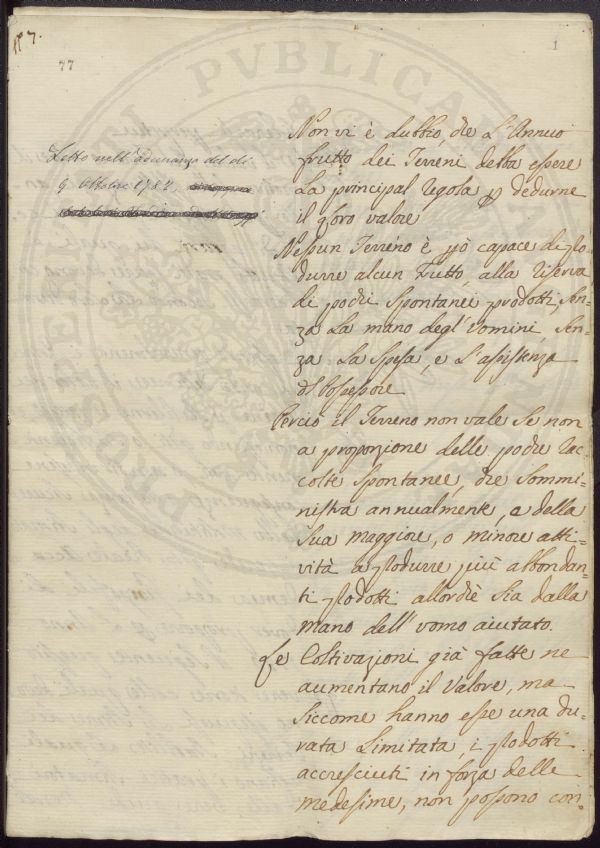 157.
77
1
Letto nell'adunanza del dì
9. Ottobre 1782.
Non vi è dubbio, che l'Annuo
frutto dei Terreni debba essere
la principal regola p dedurne
il loro valore
Nessun Terreno è pò capace di pro
durre alcun frutto, alla riserva
di pochi spontanei prodotti, sen-
za la mano degl'uomini sen-
za la spesa, e l'assistenza
del Possessore
Perciò il Terreno non vale se non
a proporzione delle poche rac-
colte spontanee, che sommi-
nistra annualmente, e della
sua maggiore, o minore atti-
vità a produrre più abbondan-
ti prodotti allorchè sia dalla
mano dell'uomo aiutato.
Le Coltivazioni già fatte ne
aumentano il valore, ma
siccome hanno esse una du-
rata limitata, i prodotti
accresciuti in forza delle
medesime, non possono con-